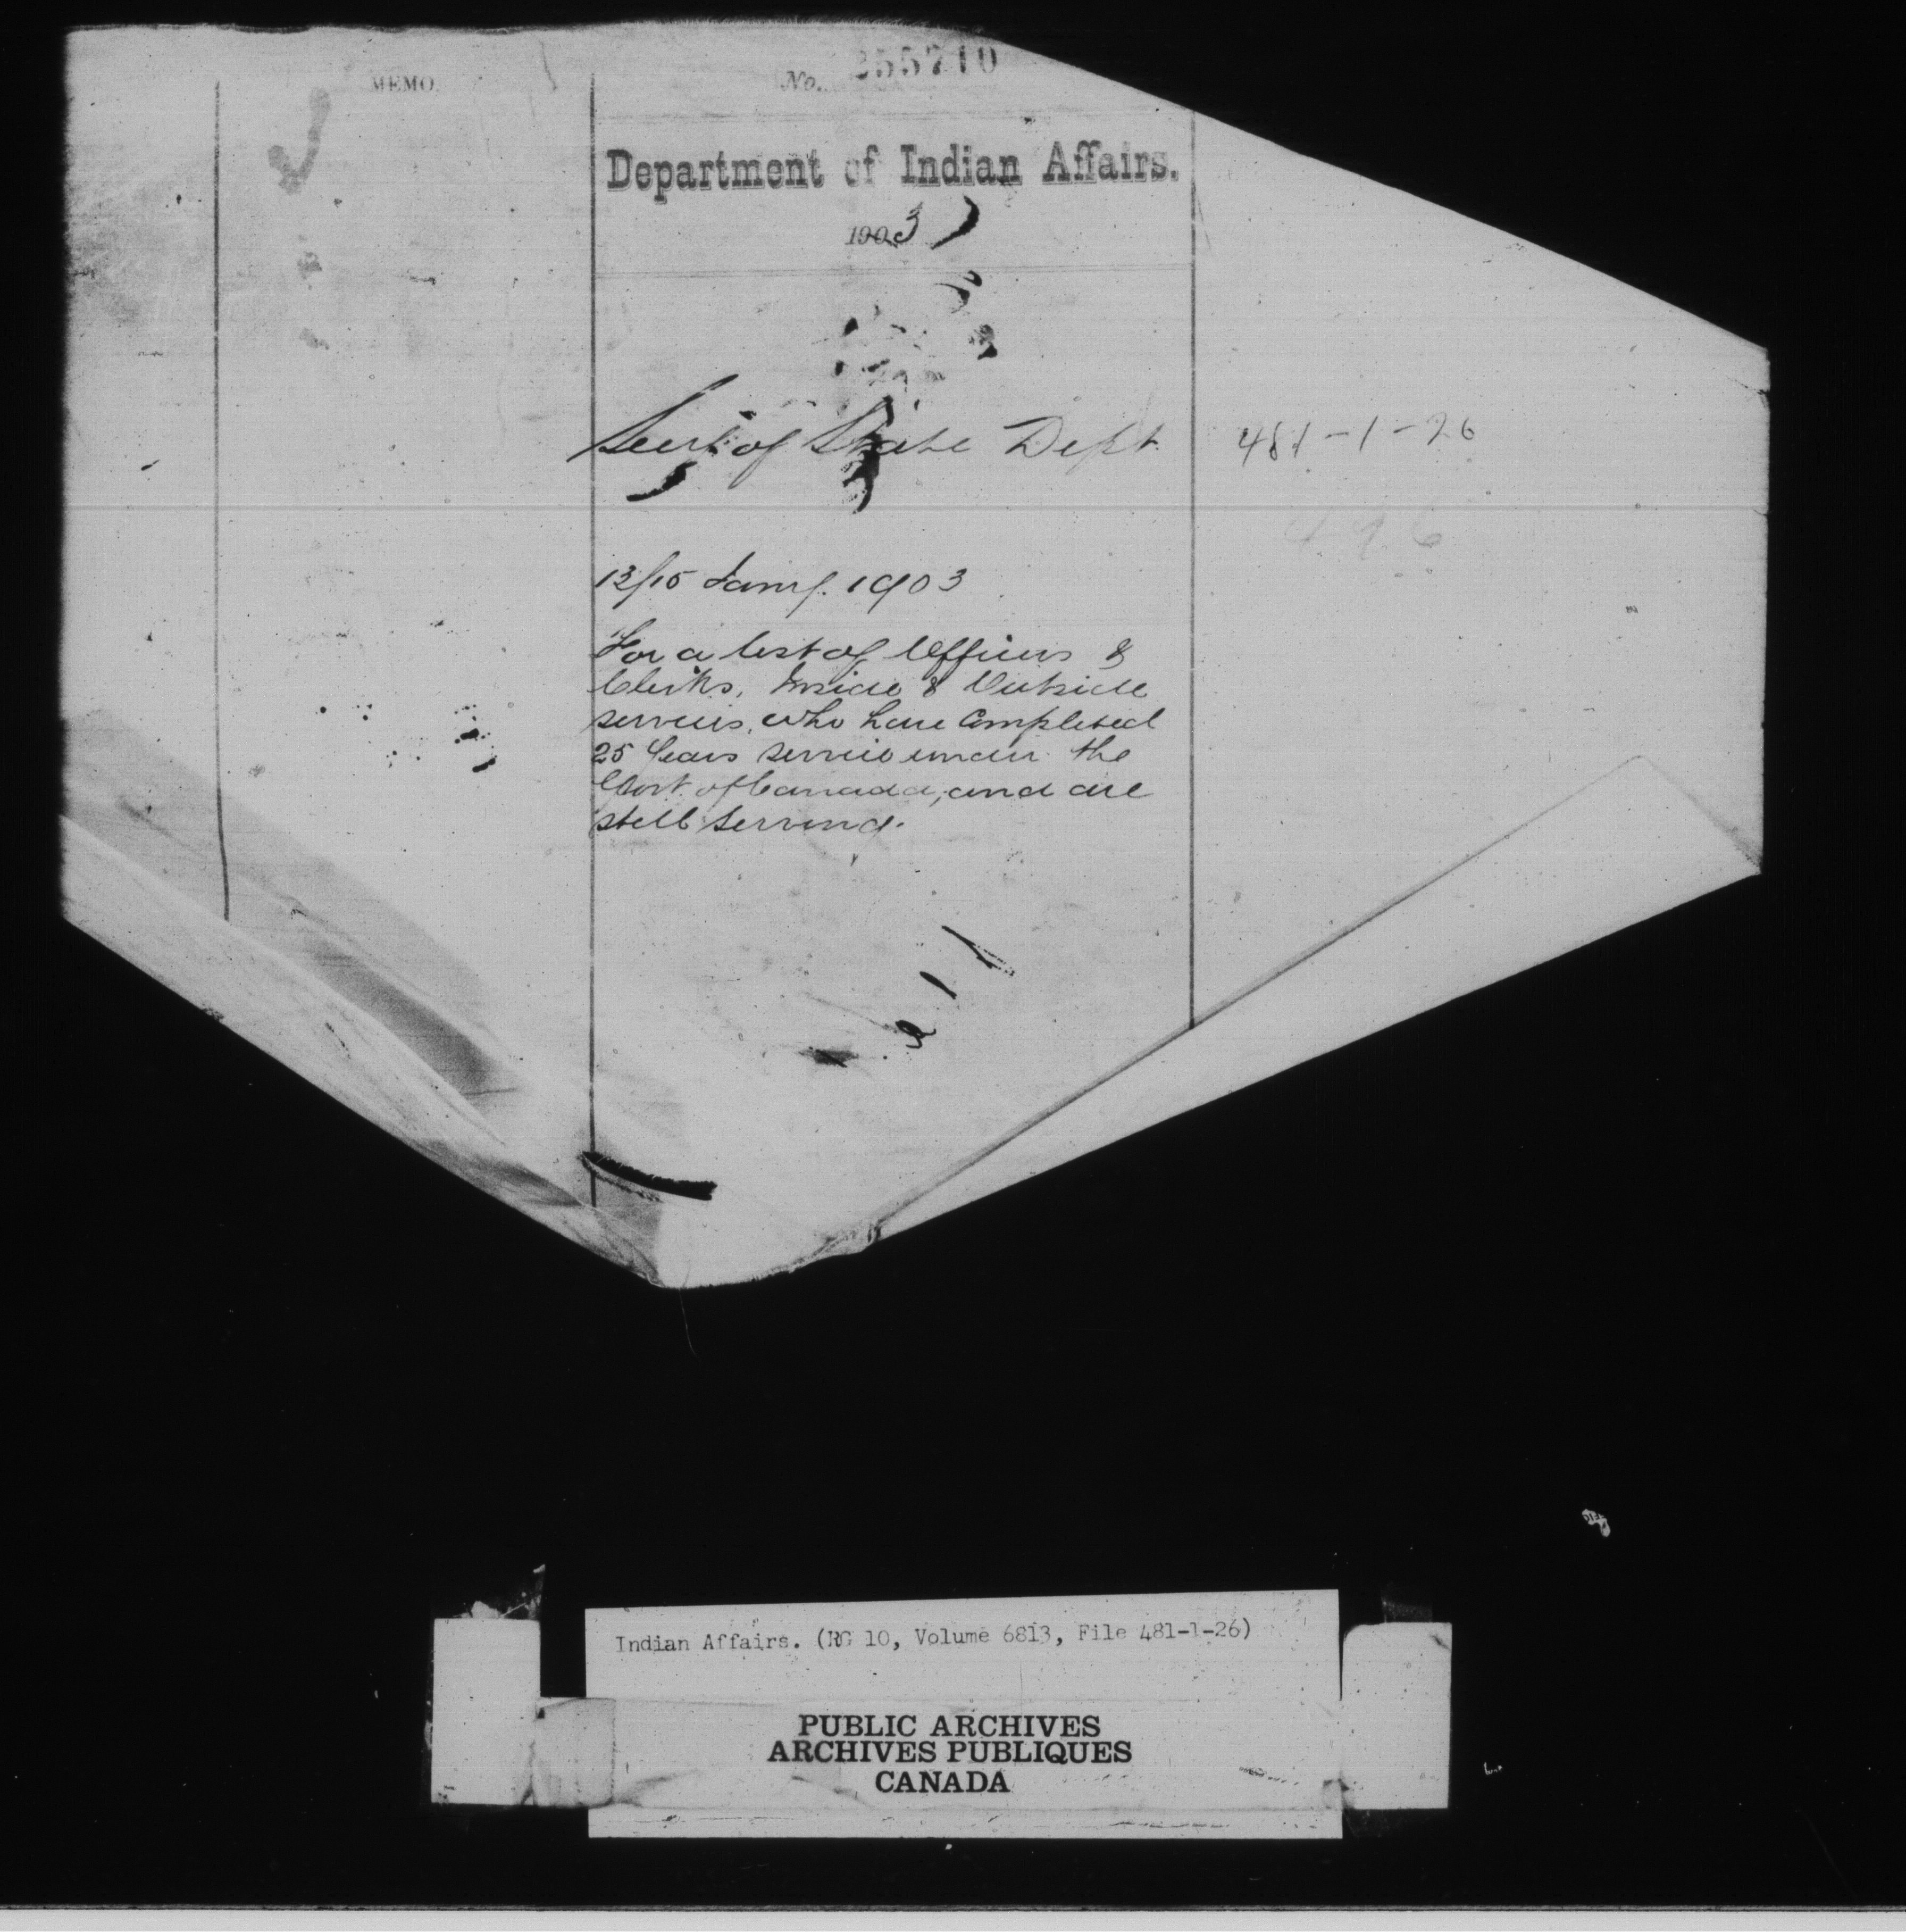 MEMO.
No. 255710
Department of Indian Affairs.
1903
Secty of State Dept.
481-1-26
496
13/15 Jany. 1903
For a list of Officers &
Clerks, Inside & Outside
services, who have Completed
25 Years service under the
Govt of Canada, and are
still serving.
Indian Affairs. (RG 10, Volume 6813, File 481-1-26)
PUBLIC ARCHIVES
ARCHIVES PUBLIQUES
CANADA